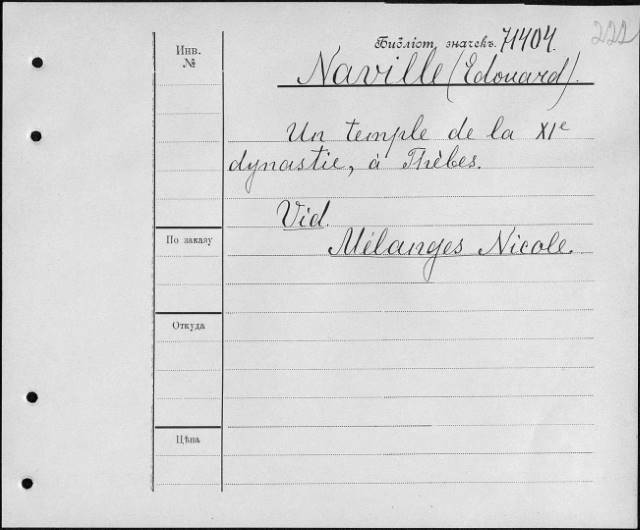 Библіот. значекъ. 71404. 222
Инв.
№
Naville (Edouard).
Un temple de la XIe
dynastie, à Thèbes.
Vid.
Mélanges Nicole.
По заказу
Откуда
Цѣна